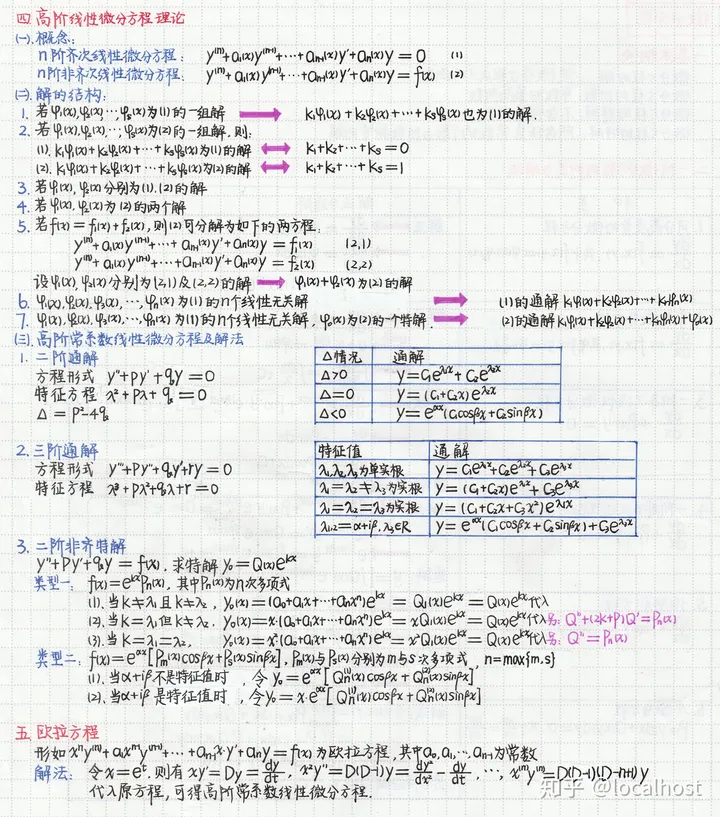 四.高阶线性微分方程理论
(一).概念:
n阶齐次线性微分方程: y⁽ⁿ⁾+a₁(x)y⁽ⁿ⁻¹⁾+···+aₙ₋₁(x)y'+aₙ(x)y=0 (1)
n阶非齐次线性微分方程: y⁽ⁿ⁾+a₁(x)y⁽ⁿ⁻¹⁾+···+aₙ₋₁(x)y'+aₙ(x)y=f(x) (2)
(二).解的结构:
1. 若φ₁(x),φ₂(x)···,φₛ(x)为(1)的一组解 → k₁φ₁(x)+k₂φ₂(x)+···+kₛφₛ(x)也为(1)的解.
2. 若φ₁(x),φ₂(x),···,φₛ(x)为(2)的一组解,则:
(1). k₁φ₁(x)+k₂φ₂(x)+···+kₛφₛ(x)为(1)的解 ↔ k₁+k₂+···+kₛ=0
(2). k₁φ₁(x)+k₂φ₂(x)+···+kₛφₛ(x)为(2)的解 ↔ k₁+k₂+···+kₛ=1
3. 若φ₁(x),φ₂(x)分别为(1).(2)的解
4. 若φ₁(x),φ₂(x)为(2)的两个解
5. 若f(x)=f₁(x)+f₂(x),则(2)可分解为如下的两方程:
y⁽ⁿ⁾+a₁(x)y⁽ⁿ⁻¹⁾+···+aₙ₋₁(x)y'+aₙ(x)y=f₁(x) (2,1)
y⁽ⁿ⁾+a₁(x)y⁽ⁿ⁻¹⁾+···+aₙ₋₁(x)y'+aₙ(x)y=f₂(x) (2,2)
设φ₁(x),φ₂(x)分别为(2,1)及(2,2)的解 → φ₁(x)+φ₂(x)为(2)的解
6. φ₁(x),φ₂(x),φ₃(x),···,φₙ(x)为(1)的n个线性无关解 → (1)的通解k₁φ₁(x)+k₂φ₂(x)+···+kₙφₙ(x)
7. φ₁(x),φ₂(x),φ₃(x),···,φₙ(x)为(1)的n个线性无关解,φ₀(x)为(2)的一个特解. → (2)的通解k₁φ₁(x)+k₂φ₂(x)+···+kₙφₙ(x)+φ₀(x)
(三).高阶常系数线性微分方程及解法
1. 二阶通解
方程形式 y''+py'+qy=0
特征方程 λ²+pλ+q=0
Δ=p²-4q
Δ情况 通解
Δ>0 y=C₁e^λ₁x+C₂e^λ₂x
Δ=0 y=(C₁+C₂x)e^λ₁x
Δ<0 y=e^αx(C₁cosβx+C₂sinβx)
2. 三阶通解
方程形式 y'''+py''+qy'+ry=0
特征方程 λ³+pλ²+qλ+r=0
特征值 通解
λ₁,λ₂,λ₃为单实根 y=C₁e^λ₁x+C₂e^λ₂x+C₃e^λ₃x
λ₁=λ₂≠λ₃为实根 y=(C₁+C₂x)e^λ₁x+C₃e^λ₃x
λ₁=λ₂=λ₃为实根 y=(C₁+C₂x+C₃x²)e^λ₁x
λ₁,₂=α+iβ,λ₃∈R y=e^αx(C₁cosβx+C₂sinβx)+C₃e^λ₃x
3. 二阶非齐特解
y''+py'+qy=f(x),求特解y₀=Q(x)e^kx
类型一: f(x)=e^kxPₙ(x),其中Pₙ(x)为n次多项式
(1).当k≠λ₁且k≠λ₂, y₀(x)=(a₀+a₁x+···+aₙxⁿ)e^kx=Q₁(x)e^kx=Q(x)e^kx代入
(2).当k=λ₁但k≠λ₂, y₀(x)=x·(a₀+a₁x+···+aₙxⁿ)e^kx=xQ₁(x)e^kx=Q(x)e^kx代入易:Q''+(2k+p)Q'=Pₙ(x)
(3).当k=λ₁=λ₂, y₀(x)=x²(a₀+a₁x+···+aₙxⁿ)e^kx=x²Q₁(x)e^kx=Q(x)e^kx代入易:Q''=Pₙ(x)
类型二: f(x)=e^αx[Pₘ(x)cosβx+Pₛ(x)sinβx],Pₘ(x)与Pₛ(x)分别为m与s次多项式,n=max{m.s}
(1).当α+iβ不是特征值时,令y₀=e^αx[Qₙ⁽¹⁾(x)cosβx+Qₙ⁽²⁾(x)sinβx]
(2).当α+iβ是特征值时,令y₀=x·e^αx[Qₙ⁽¹⁾(x)cosβx+Qₙ⁽²⁾(x)sinβx]
五.欧拉方程
形如xⁿy⁽ⁿ⁾+a₁xⁿ⁻¹y⁽ⁿ⁻¹⁾+···+aₙ₋₁x·y'+aₙy=f(x)为欧拉方程,其中a₀,a₁,···aₙ₋₁为常数
解法: 令x=eᵗ.则有xy'=Dy=dy/dt, x²y''=D(D-1)y=dy²/dx²-dy/dt,···,xⁿy⁽ⁿ⁾=D(D-1)(D-n+1)y
代入原方程,可得高阶常系数线性微分方程.
知乎 @localhost